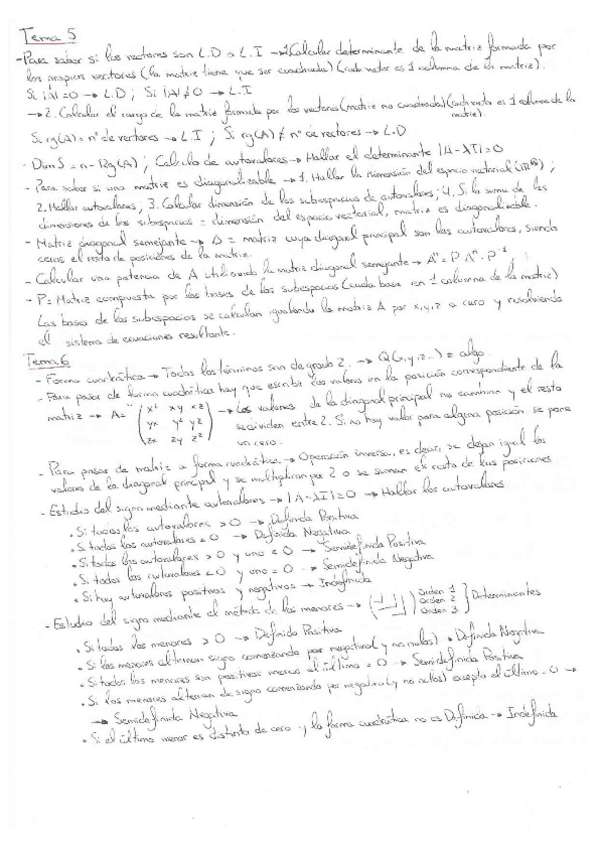 Tema 5
-Para saber si los vectores son L.D o L.I → 1. Calcular determinante de la matriz formada por
los propios vectores (la matriz tiene que ser cuadrada) (cada vector es 1 columna de la matriz).
Si |A|=0 → L.D ; Si |A|≠0 → L.I
→ 2. Calcular el rango de la matriz formada por los vectores (matriz no cuadrada) (cada vector es 1 columna de la
matriz).
Si rg(A) = nº de vectores → L.I ; Si rg(A) ≠ nº de vectores → L.D
- Dim S = n - Rg(A) ; Calculo de autovalores → Hallar el determinante |A-λI|=0
- Para saber si una matriz es diagonalizable → 1. Hallar la dimensión del espacio vectorial (ℝ) ;
2. Hallar autovalores ; 3. Calcular dimensión de los subespacios de autovalores ; 4. Si la suma de las
dimensiones de los subespacios = dimensión del espacio vectorial, matriz es diagonalizable.
- Matriz diagonal semejante → D = matriz cuya diagonal principal son los autovalores, siendo
ceros el resto de posiciones de la matriz.
- Calcular una potencia de A utilizando la matriz diagonal semejante → Aⁿ = P Λⁿ · P⁻¹
- P = Matriz compuesta por las bases de los subespacios (cada base es 1 columna de la matriz)
Las bases de los subespacios se calculan igualando la matriz A por x,y,z a cero y resolviendo
el sistema de ecuaciones resultante.
Tema 6
- Forma cuadrática → Todos los términos son de grado 2. → Q(x,y,z..) = algo
- Para pasar de forma cuadrática hay que escribir los valores en la posición correspondiente de la
matriz → A= (x² xy xz → Los valores de la diagonal principal no cambian y el resto
yx y² yz se dividen entre 2. Si no hay valor para alguna posición se pone
zx zy z²) un cero.
- Para pasar de matriz a forma cuadrática → Operación inversa, es decir, se dejan igual los
valores de la diagonal principal y se multiplican por 2 o se suman el resto de las posiciones
- Estudio del signo mediante autovalores → |A-λI|=0 → Hallar los autovalores
• Si todos los autovalores > 0 → Definida Positiva
• Si todos los autovalores < 0 → Definida Negativa
• Si todos los autovalores > 0 y uno = 0 → Semidefinida Positiva
• Si todos los autovalores < 0 y uno = 0 → Semidefinida Negativa
• Si hay autovalores positivos y negativos → Indefinida
- Estudio del signo mediante el método de los menores → Orden 1
Orden 2 Determinantes
Orden 3
• Si todos los menores > 0 → Definida Positiva
• Si los menores alternan signo comenzando por negativo (y no nulos) → Definida Negativa
• Si todos los menores son positivos menos el último = 0 → Semidefinida Positiva
• Si los menores alternan de signo comenzando por negativo (y no nulos) excepto el último = 0 →
→ Semidefinida Negativa
• Si el último menor es distinto de cero y la forma cuadrática no es Definida → Indefinida